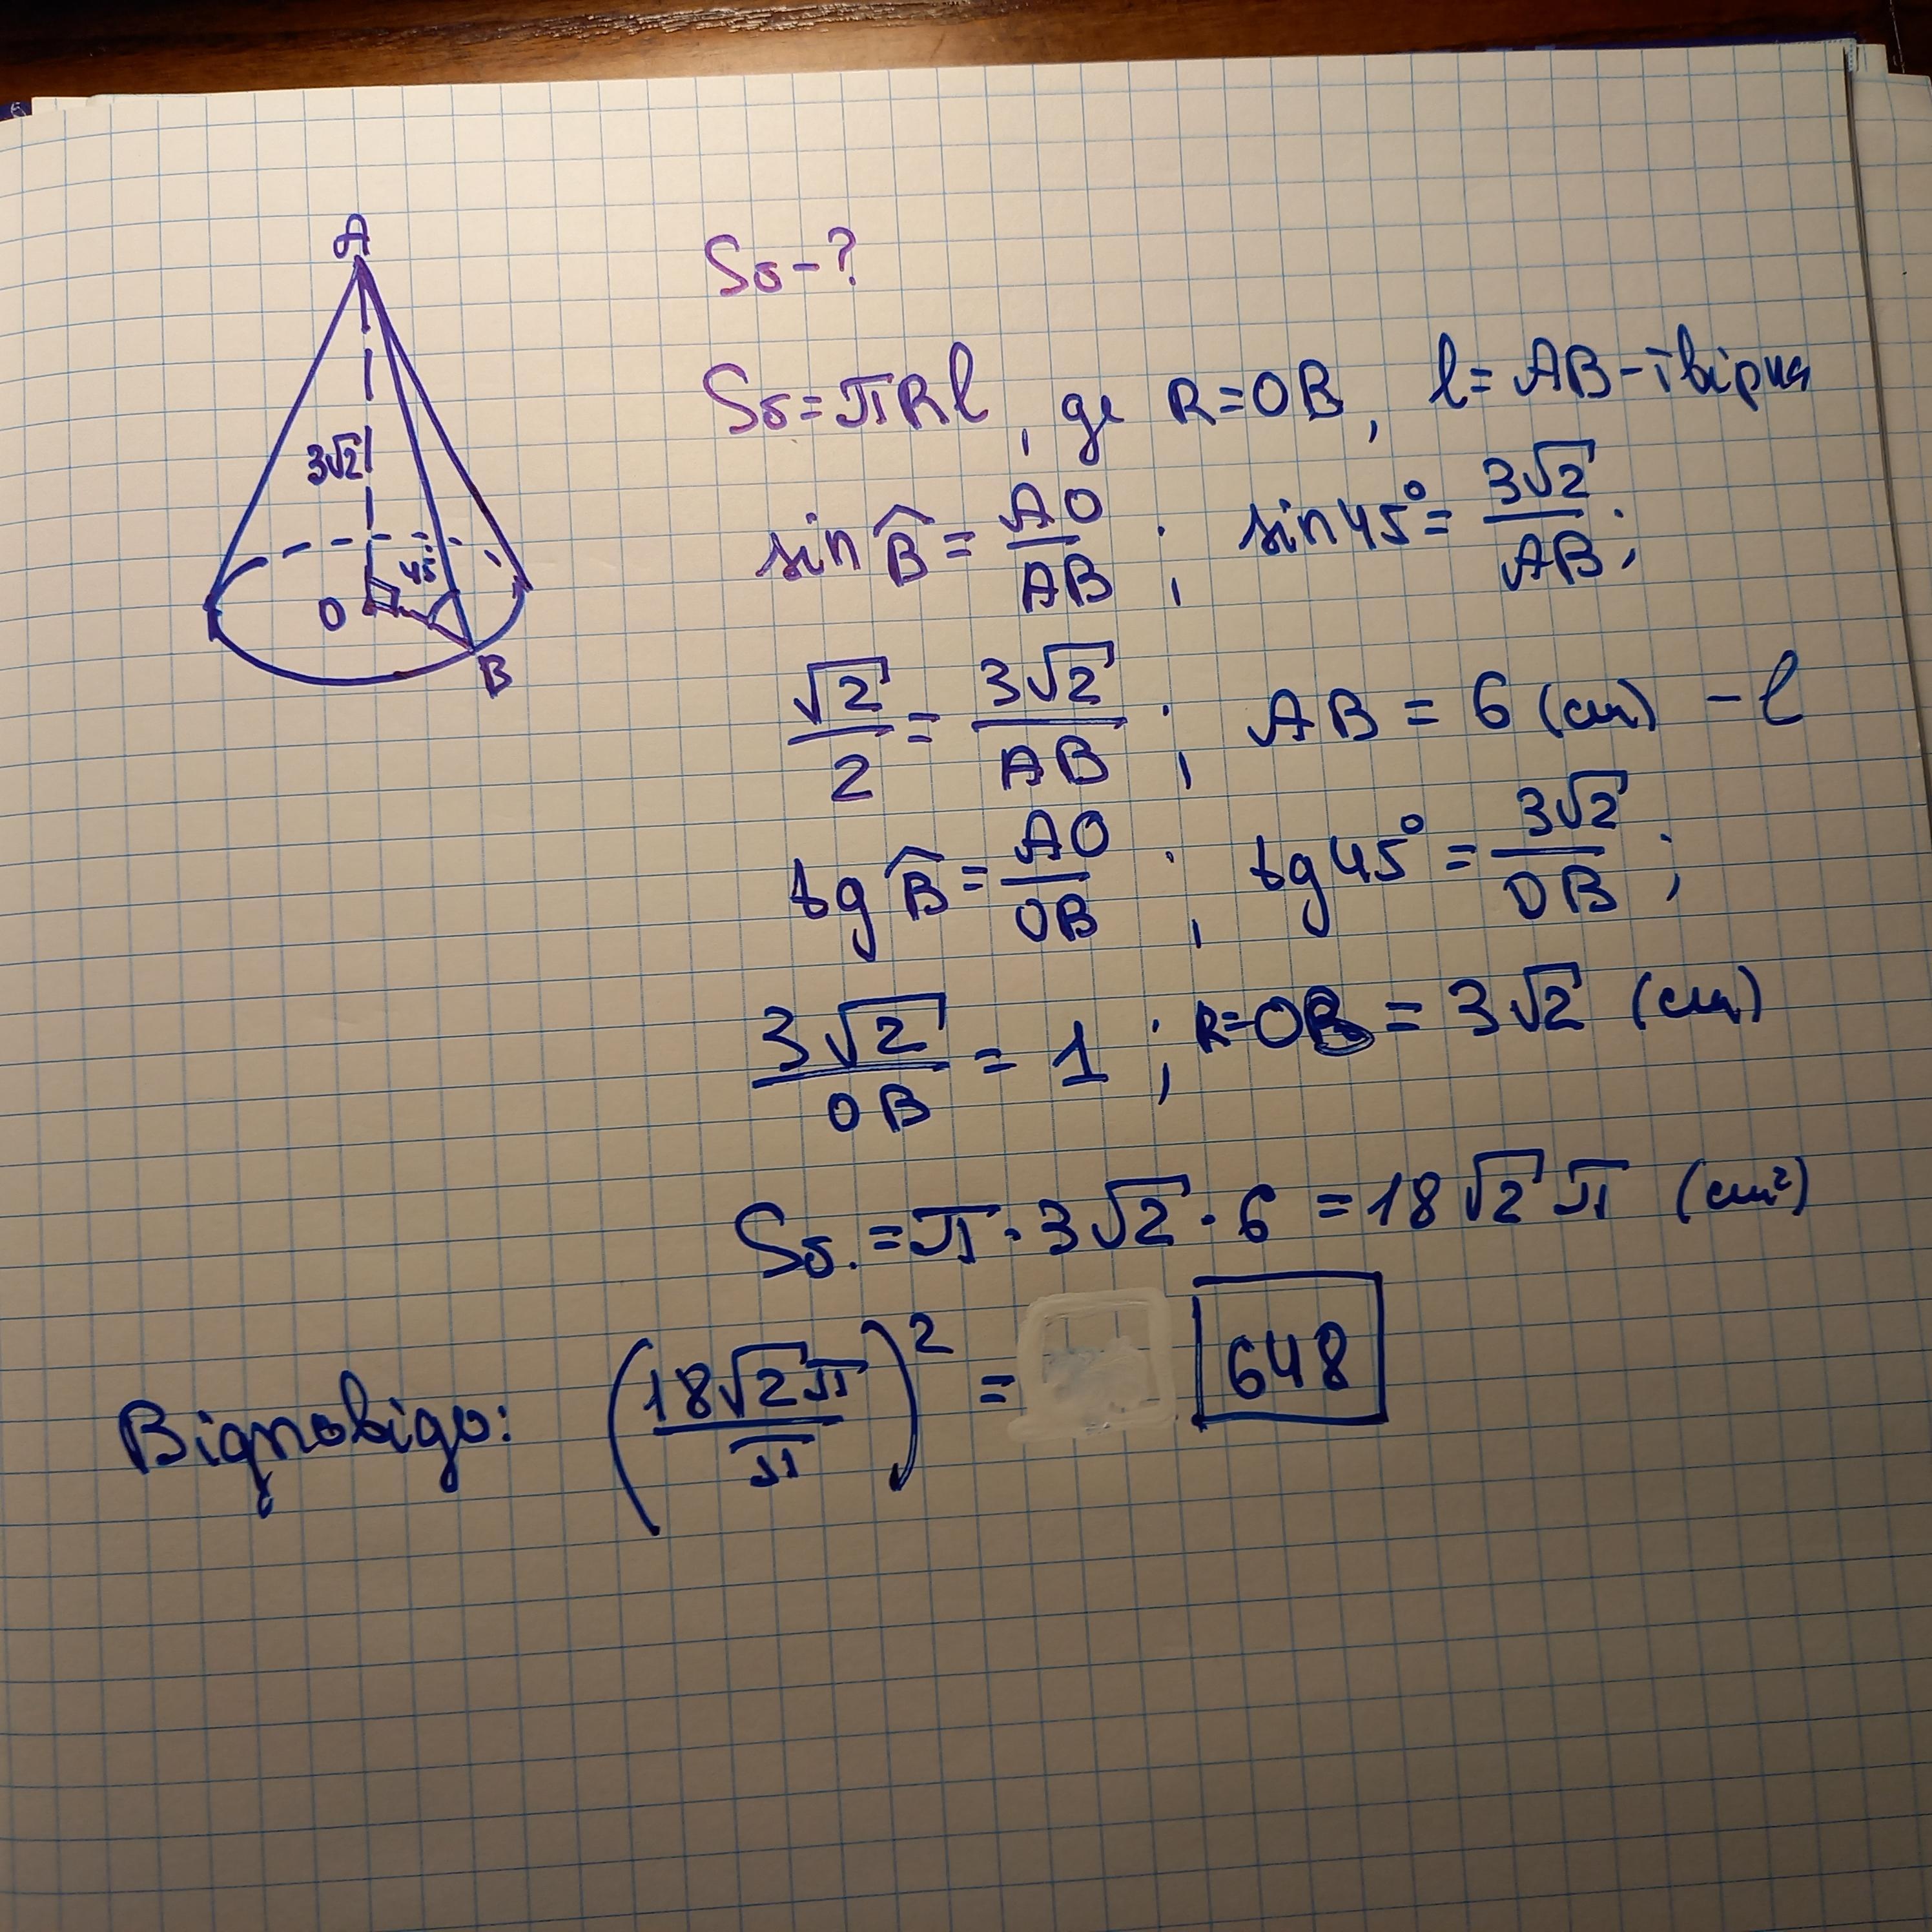 A
3√2
45°
O
B
Sб-?
Sб=πRl, де R=OB, l=AB-твірна
sin B̂ = AO/AB; sin45°= 3√2/AB;
√2/2 = 3√2/AB; AB = 6 (см) - l
tg B̂ = AO/OB; tg45° = 3√2/OB;
3√2/OB = 1; R=OB = 3√2 (см)
Sб. = π·3√2·6 = 18√2π (см²)
Відповідь: (18√2π/π)² = 648